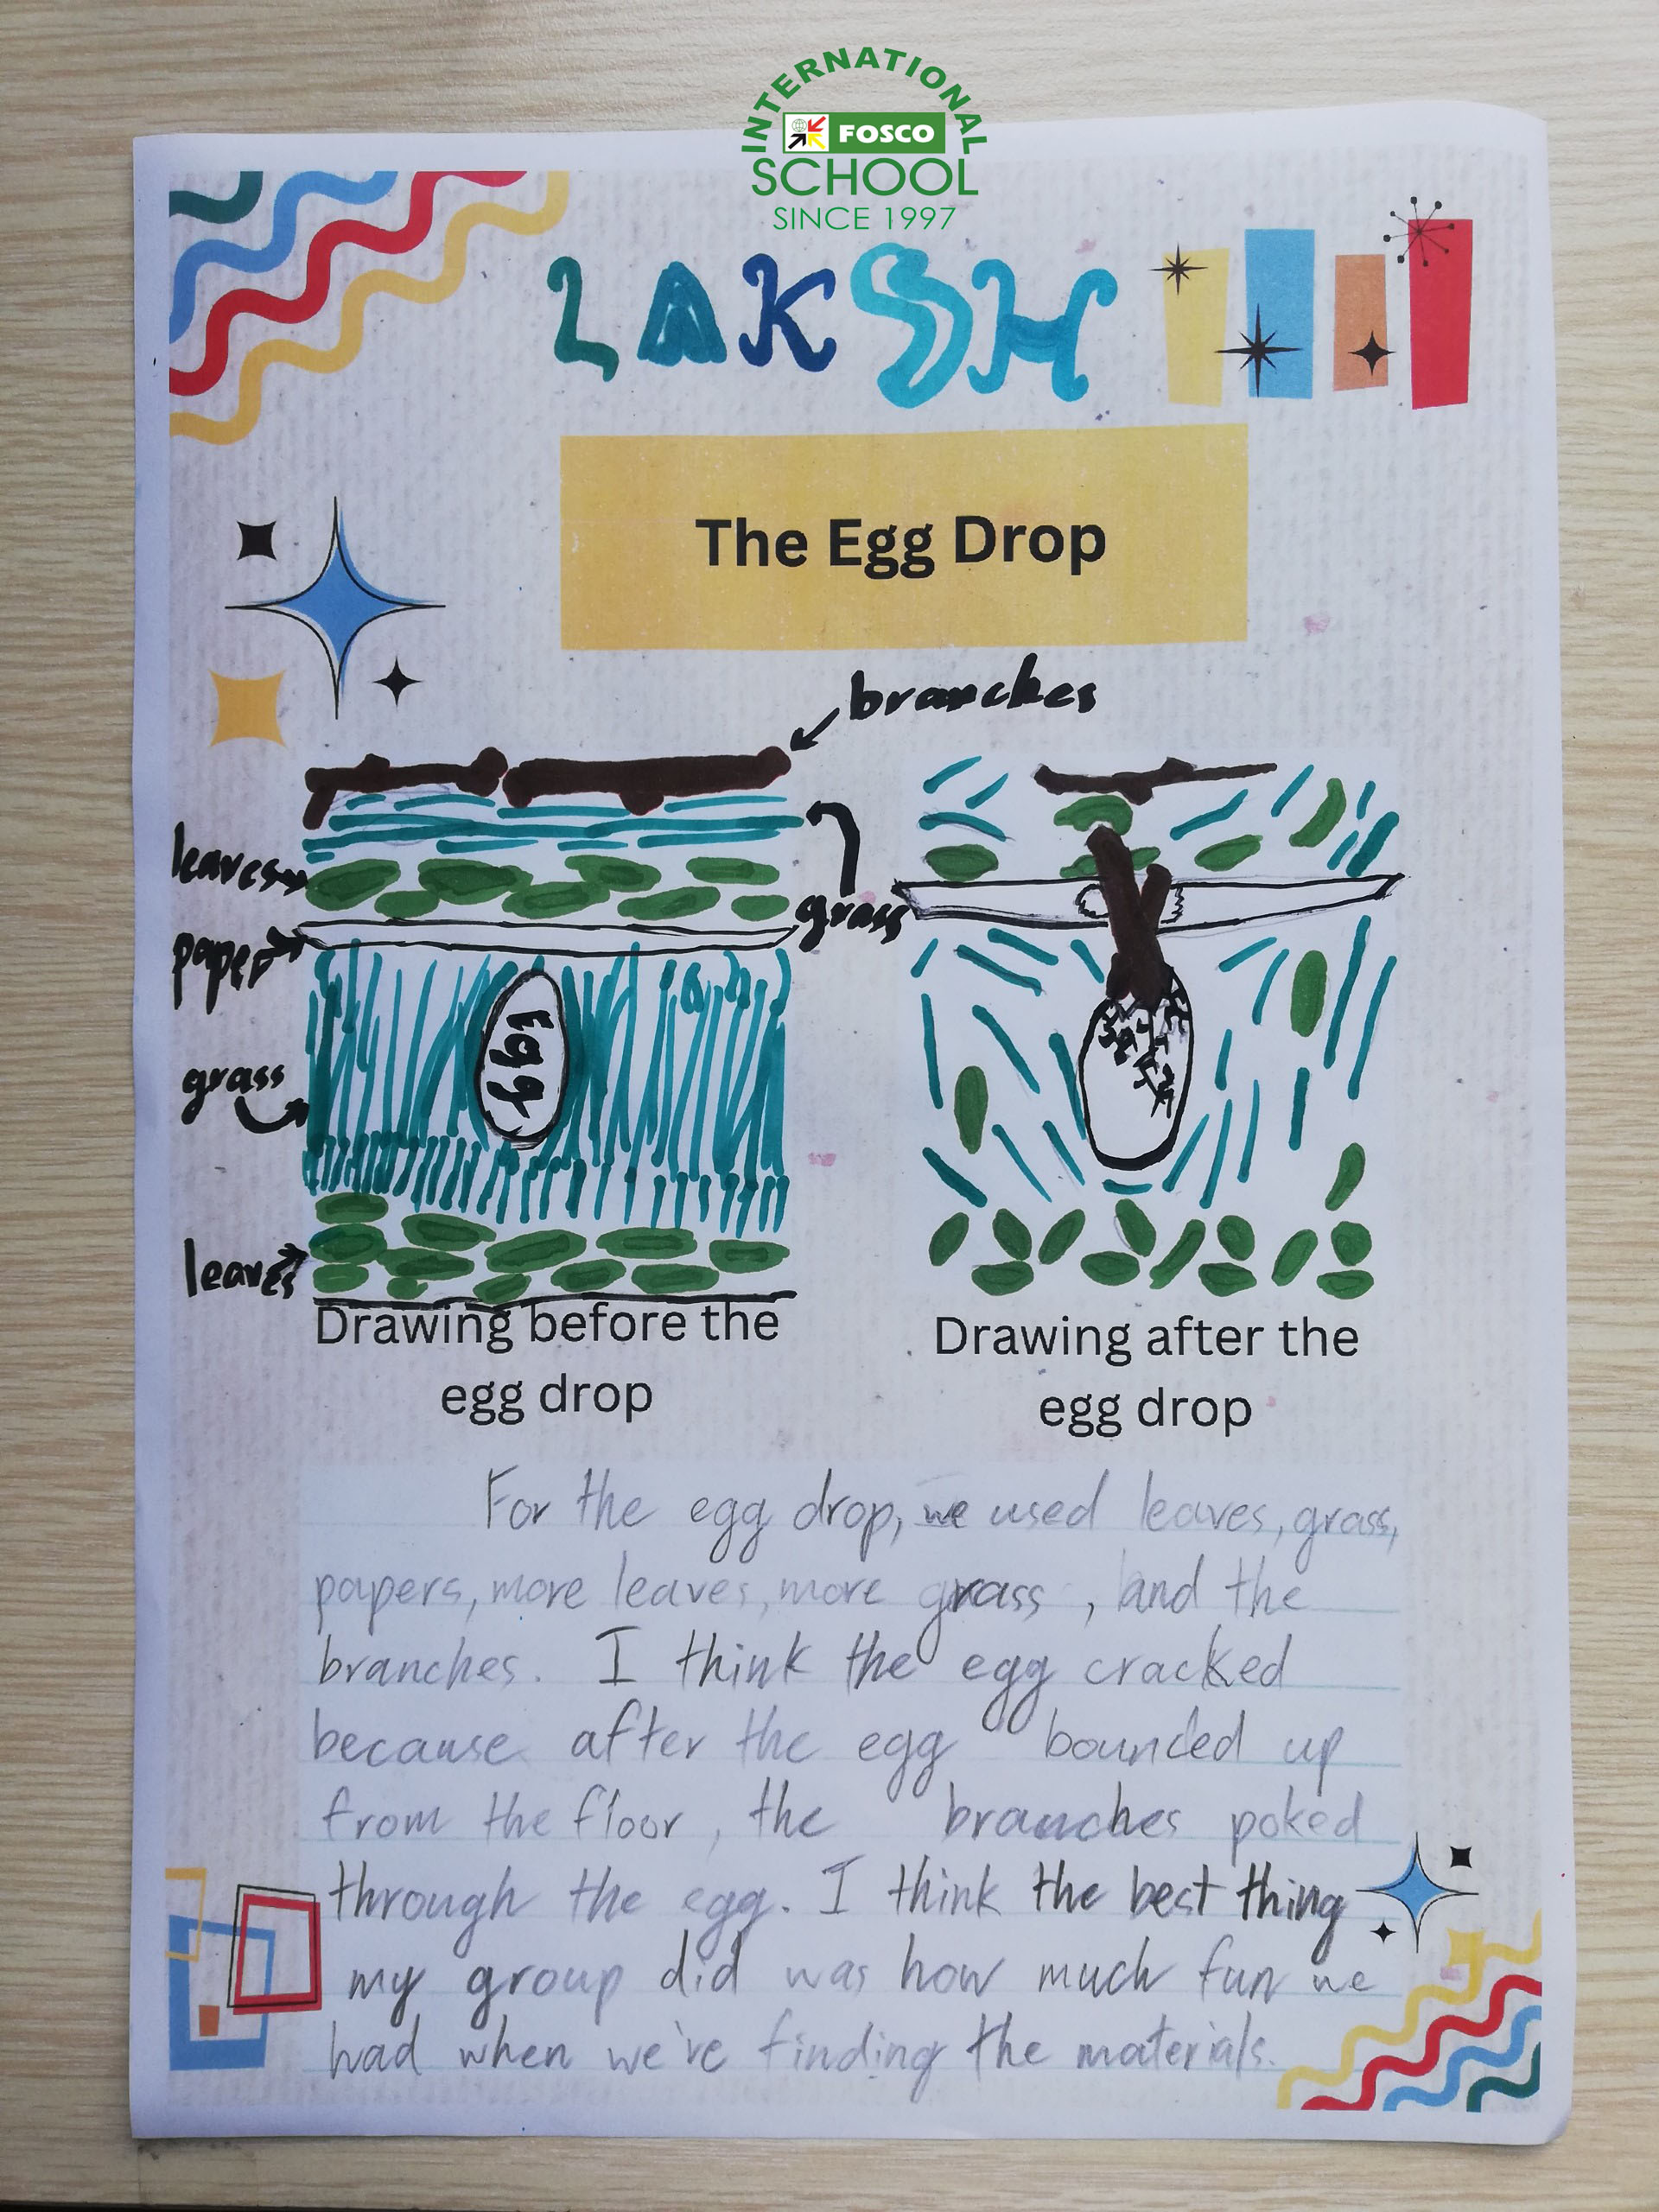 INTERNATIONAL
FOSCO
SCHOOL
SINCE 1997
LAKSH
The Egg Drop
branches
leaves
grass
paper
Egg
grass
leaves
Drawing before the
egg drop
Drawing after the
egg drop
For the egg drop, we used leaves, grass,
papers, more leaves, more grass, and the
branches. I think the egg cracked
because after the egg bounced up
from the floor, the branches poked
through the egg. I think the best thing
my group did was how much fun we
had when we've finding the materials.